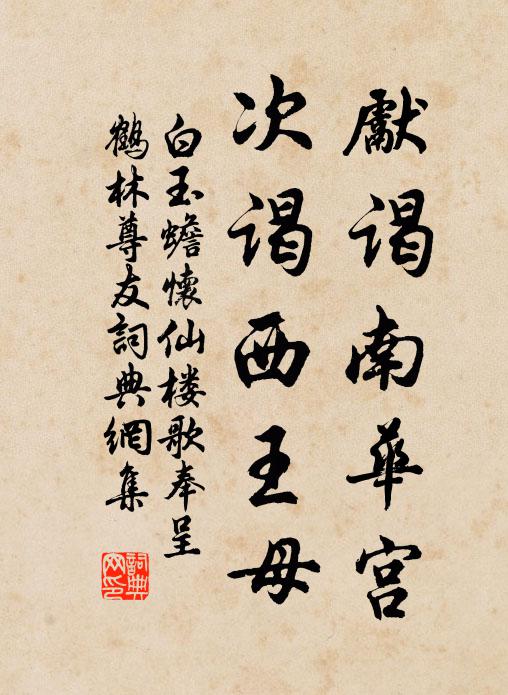 獻謁南華宮
次謁西王母
白玉蟾懷仙楼歌奉呈
鶴林尊友詞典網集
詞典
网印